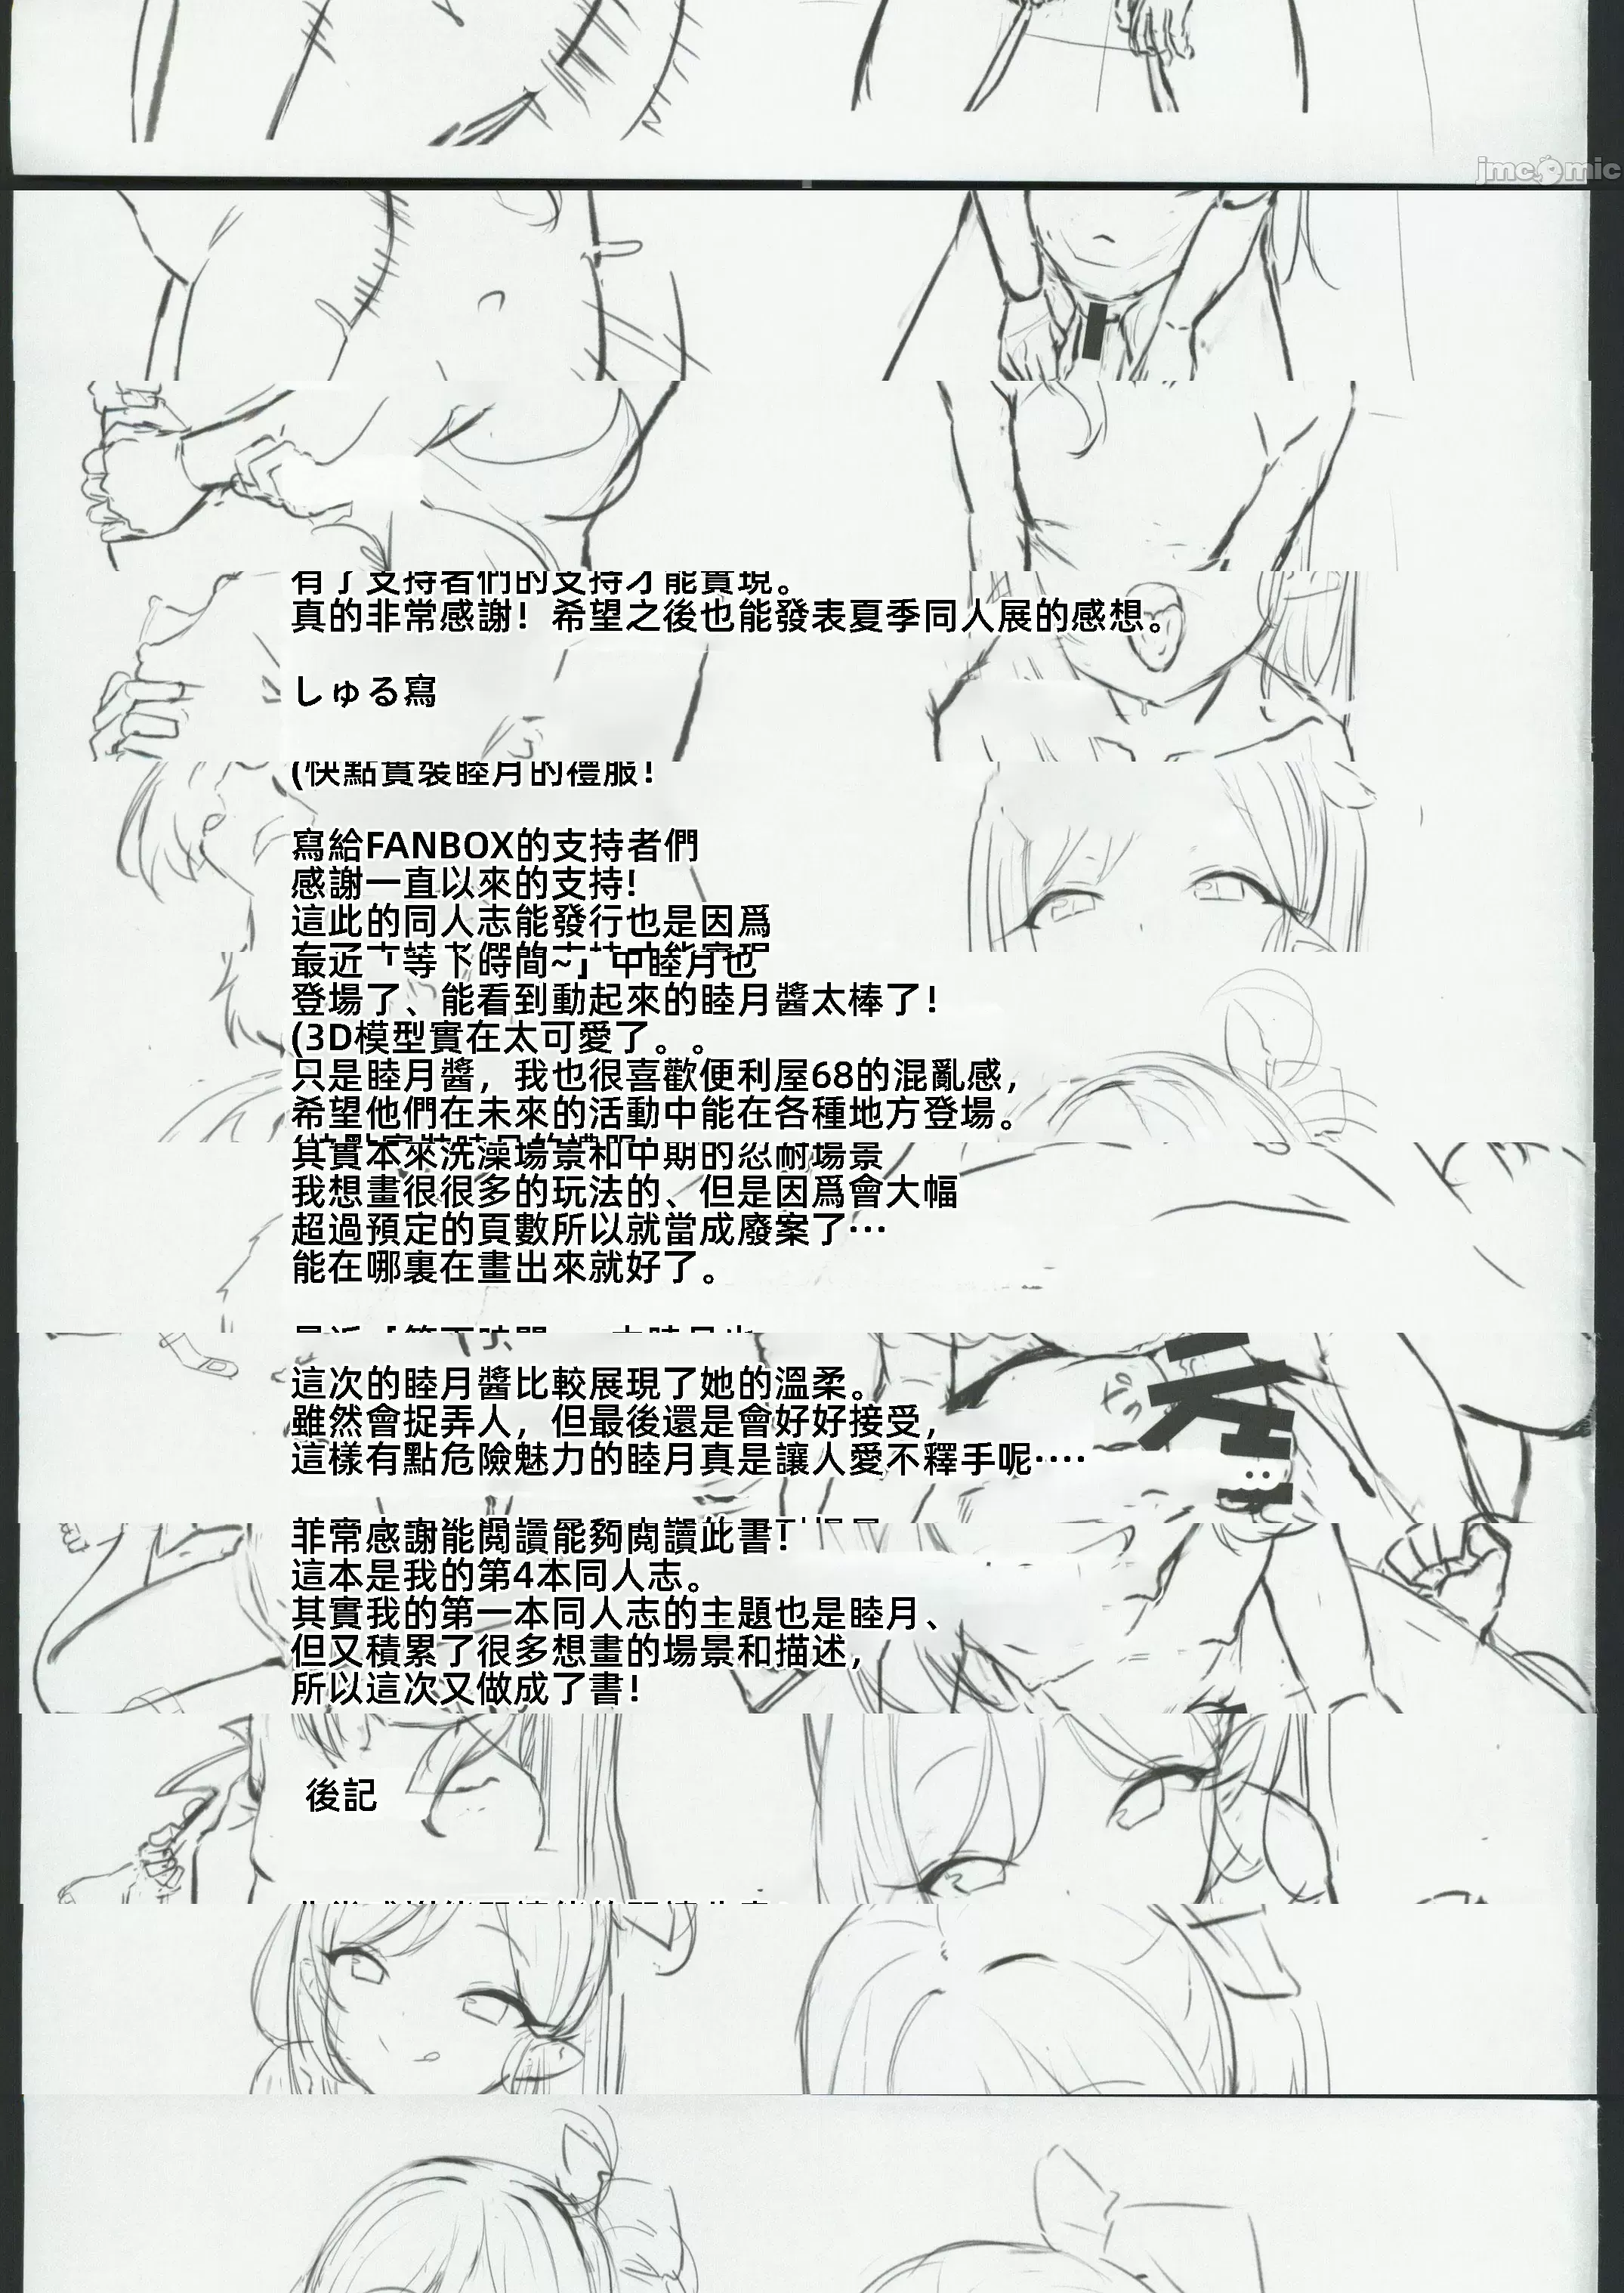 jmcomic
有了支持者們的支持才能實現。
真的非常感謝！希望之後也能發表夏季同人展的感想。
しゅる寫
(快點實裝睦月的禮服！
寫給FANBOX的支持者們
感謝一直以來的支持！
這此的同人志能發行也是因爲
最近「等下時間~」中睦月也
登場了、能看到動起來的睦月醬太棒了！
(3D模型實在太可愛了。。
只是睦月醬，我也很喜歡便利屋68的混亂感，
希望他們在未來的活動中能在各種地方登場。
其實本來洗澡場景和中期的忍耐場景
我想畫很很多的玩法的、但是因爲會大幅
超過預定的頁數所以就當成廢案了…
能在哪裏在畫出來就好了。
這次的睦月醬比較展現了她的溫柔。
雖然會捉弄人，但最後還是會好好接受，
這樣有點危險魅力的睦月真是讓人愛不釋手呢‥‥
非常感謝能閲讀能夠閲讀此書！
這本是我的第4本同人志。
其實我的第一本同人志的主題也是睦月、
但又積累了很多想畫的場景和描述，
所以這次又做成了書！
後記